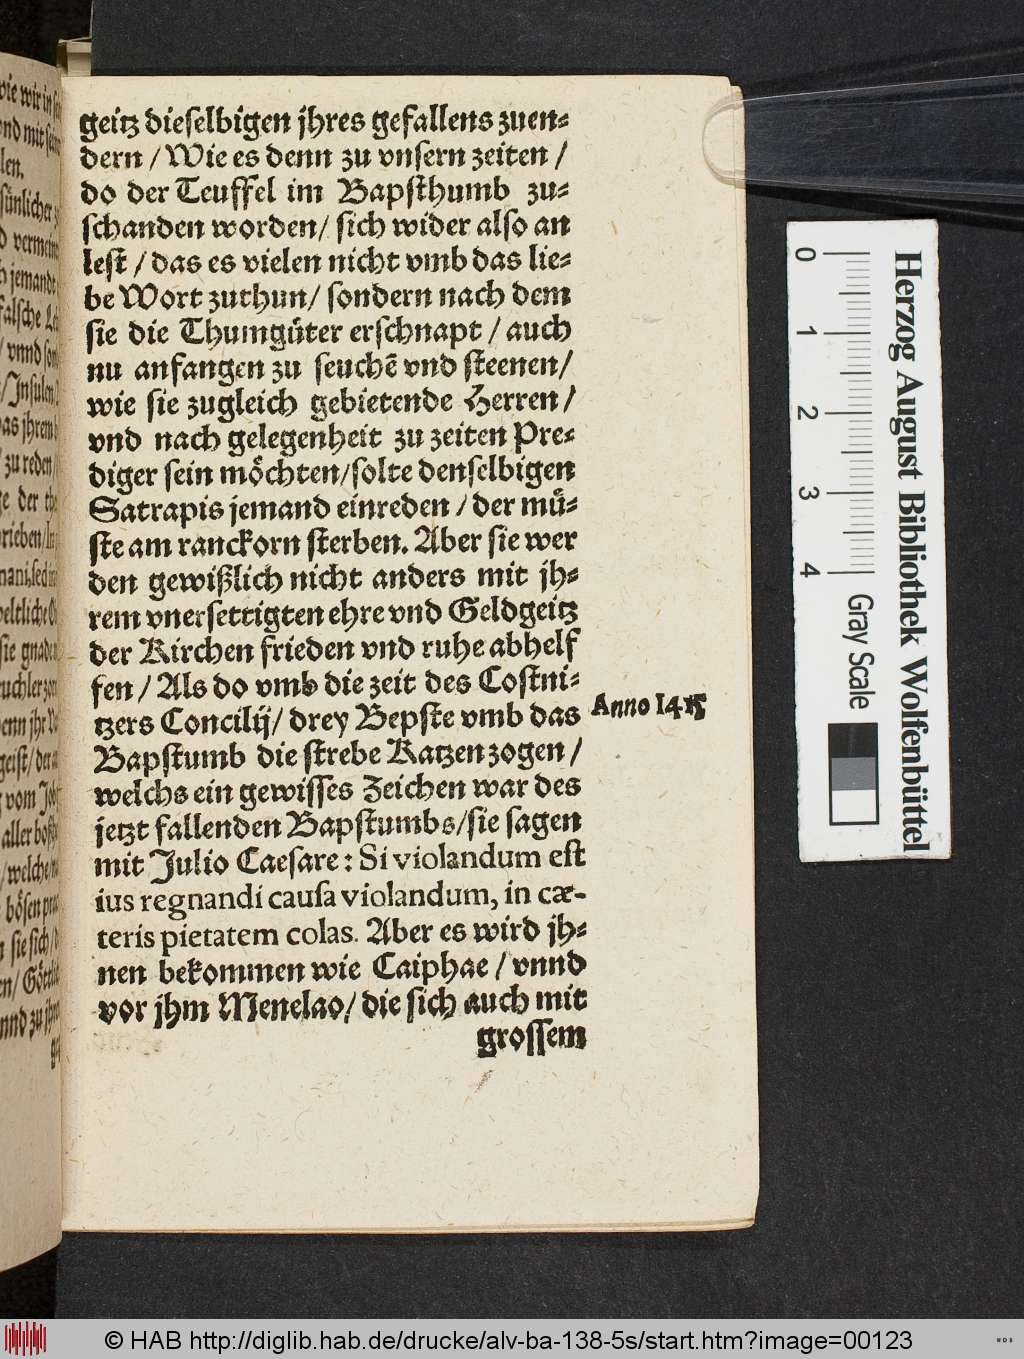 geitz dieselbigen jhres gefallens zuen⸗
dern / Wie es denn zu vnsern zeiten /
do der Teuffel im Bapsthumb zu⸗
schanden worden / sich wider also an
lest / das es vielen nicht vmb das lie⸗
be Wort zuthun / sondern nach dem
sie die Thumgüter erschnapt / auch
nu anfangen zu seuchē vnd steenen /
wie sie zugleich gebietende Herren /
vnd nach gelegenheit zu zeiten Pre⸗
diger sein möchten / solte denselbigen
Satrapis jemand einreden / der mü⸗
ste am ranckorn sterben. Aber sie wer
den gewißlich nicht anders mit jh⸗
rem vnersettigten ehre vnd Geldgeitz
der Kirchen frieden vnd ruhe abhelf
fen / Als do vmb die zeit des Costni⸗
tzers Concilij / drey Bepste vmb das
Anno 1415
Bapstumb die strebe Katzen zogen /
welchs ein gewisses Zeichen war des
jetzt fallenden Bapstumbs / sie sagen
mit Julio Caesare : Si violandum est
ius regnandi causa violandum, in cæ-
teris pietatem colas. Aber es wird jh⸗
nen bekommen wie Caiphae / vnnd
vor jhm Menelao / die sich auch mit
grossem
Herzog August Bibliothek Wolfenbüttel
0 1 2 3 4 Gray Scale
© HAB http://diglib.hab.de/drucke/alv-ba-138-5s/start.htm?image=00123